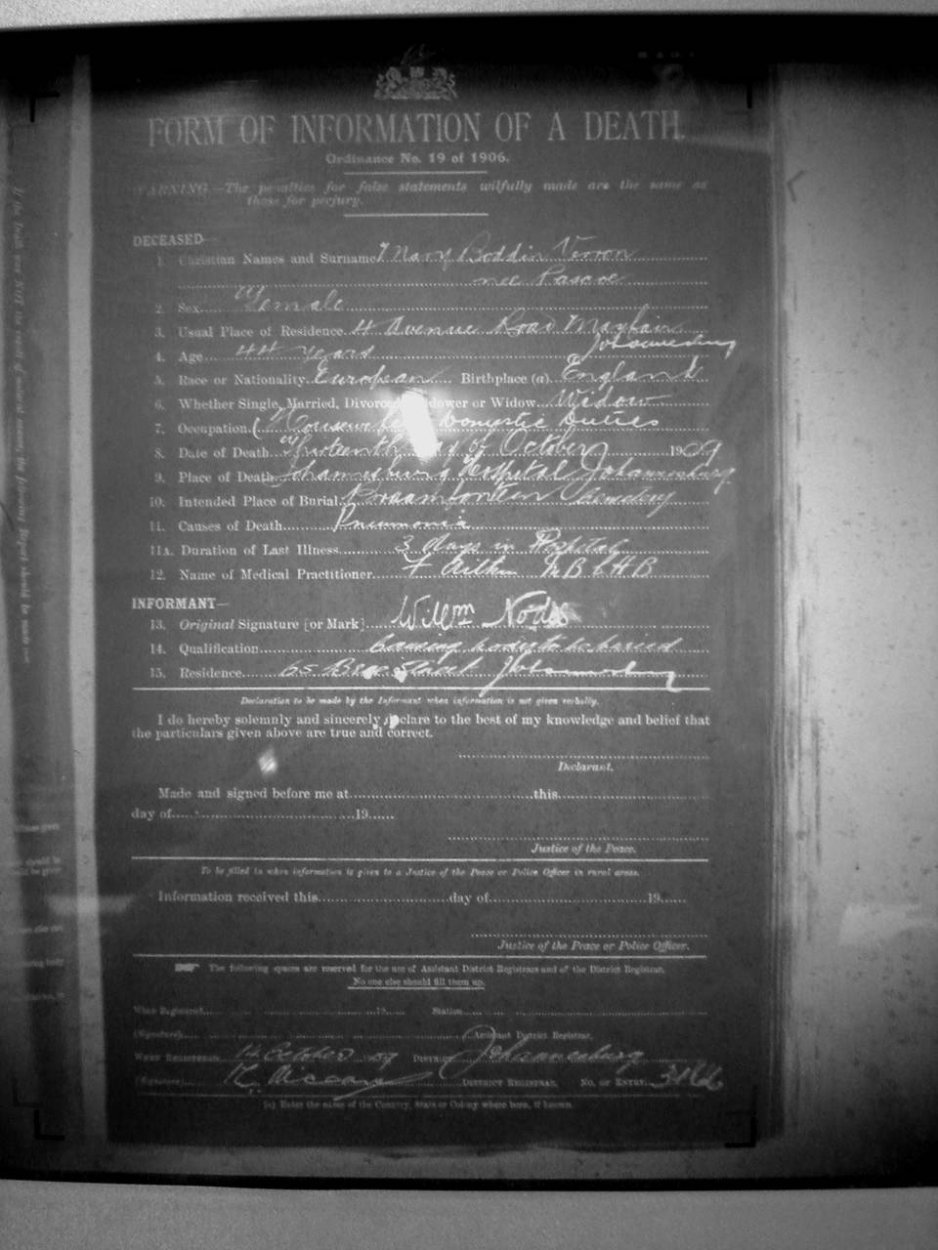 FORM OF INFORMATION OF A DEATH.
Ordinance No. 19 of 1906.
WARNING.—The penalties for false statements wilfully made are the same as
those for perjury.
DECEASED—
1. Christian Names and Surname Mary Boddin Vernon
nee Pascoe
2. Sex Female
3. Usual Place of Residence 4 Avenue Road Mayfair
Johannesburg
4. Age 44 years
5. Race or Nationality European Birthplace (a) England
6. Whether Single, Married, Divorced Widower or Widow Widow
7. Occupation Domestic Duties
8. Date of Death Thirteenth day of October 1909
9. Place of Death Johannesburg Hospital Johannesburg
10. Intended Place of Burial Braamfontein Cemetery
11. Causes of Death Pneumonia
11A. Duration of Last Illness 3 days in Hospital
12. Name of Medical Practitioner F Aitken MB
INFORMANT—
13. Original Signature [or Mark] Willm Nodes
14. Qualification Causing body to be buried
15. Residence 65 Bree Street Johannesburg
Declaration to be made by the Informant when information is not given verbally.
I do hereby solemnly and sincerely declare to the best of my knowledge and belief that
the particulars given above are true and correct.
Declarant.
Made and signed before me at this
day of 19
Justice of the Peace.
To be filled in when information is given to a Justice of the Peace or Police Officer in rural areas.
Information received this day of 19
Justice of the Peace or Police Officer.
The following spaces are reserved for the use of Assistant District Registrars and of the District Registrar.
No one else should fill them up.
When Registered 19 Station
(Signature) Assistant District Registrar.
WHEN REGISTERED 14 October 1909 DISTRICT Johannesburg
(Signature) DISTRICT REGISTRAR. NO. OF ENTRY
(a) Enter the name of the Country, State or Colony where born, if known